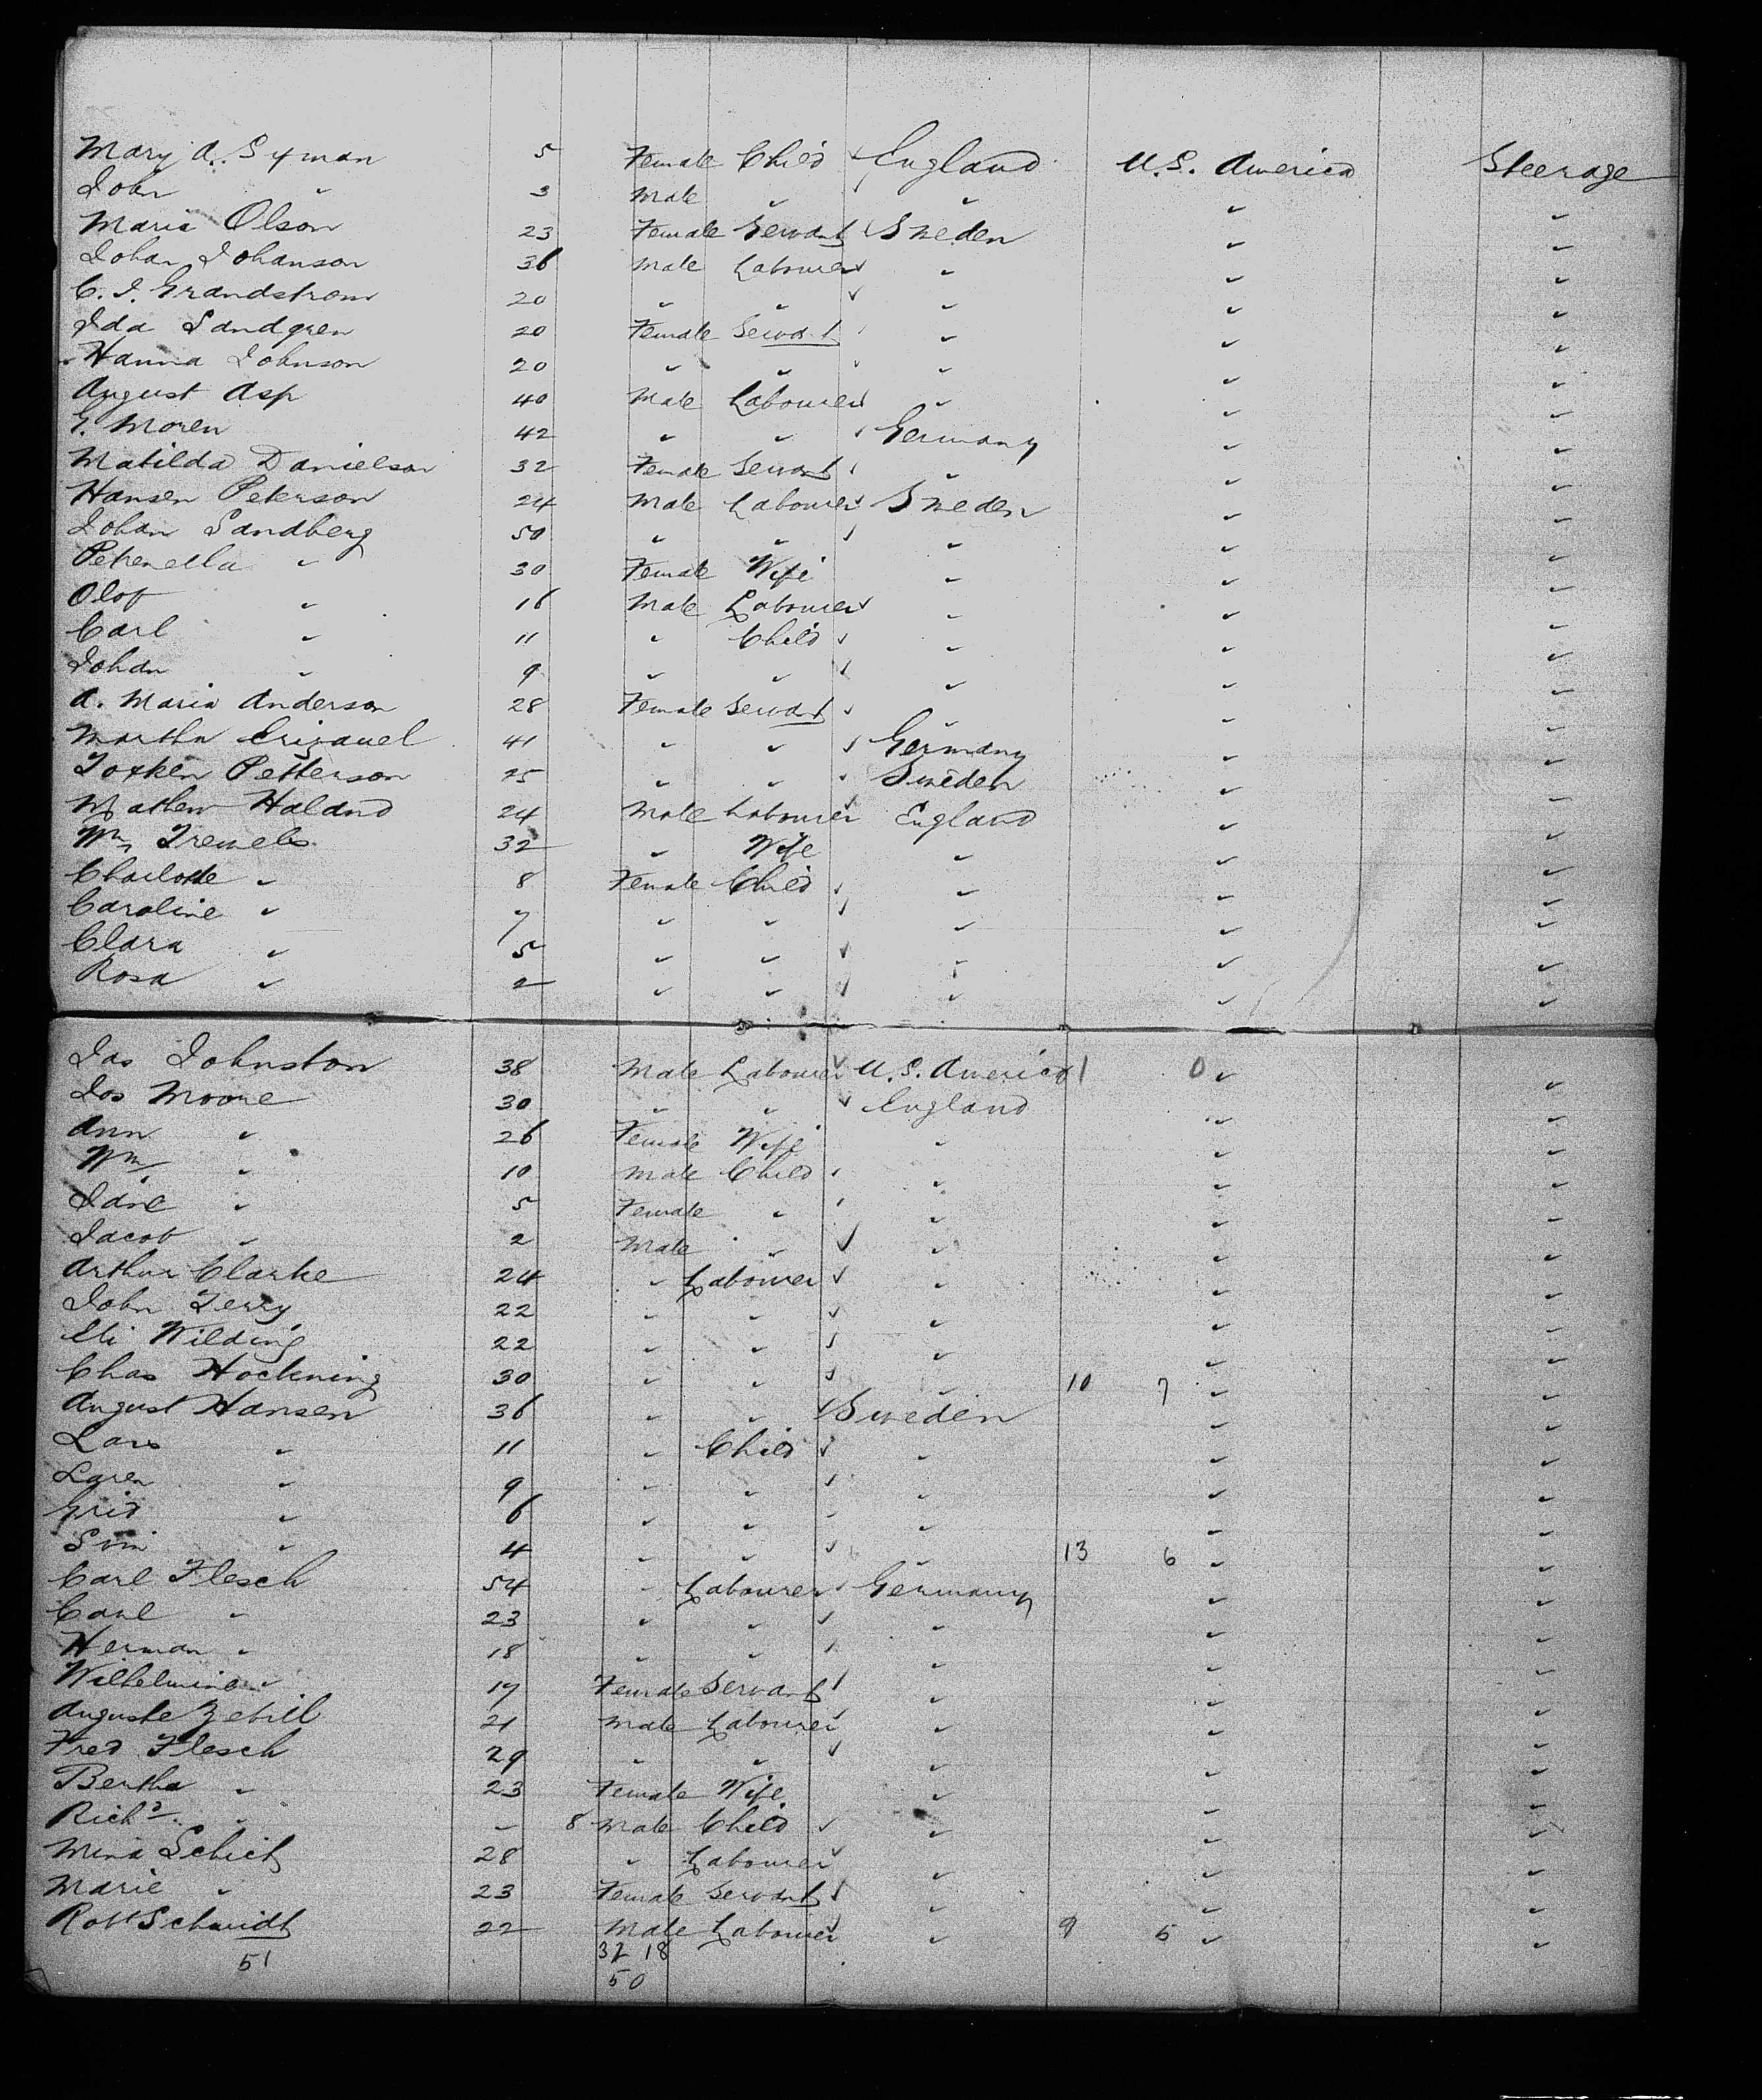 Mary A. Syman 5 Female Child ✓ England U.S. America Steerage
John " 3 Male " ✓ " " "
Maria Olson 23 Female Servant ✓ Sweden " "
Johan Johanson 36 Male Labourer ✓ " " "
C. J. Grandstrom 20 " " ✓ " " "
Ida Sandgren 20 Female Servant ✓ " " "
Hanna Johnson 20 " " ✓ " " "
August Asp 40 Male Labourer ✓ " " "
G. Moren 42 " " ✓ Germany " "
Matilda Danielson 32 Female Servant ✓ " " "
Hansen Peterson 24 Male Labourer ✓ Sweden " "
Johan Sandberg 50 " " ✓ " " "
Petrenella " 30 Female Wife " " "
Olof " 16 Male Labourer ✓ " " "
Carl " 11 " Child ✓ " " "
Johan " 9 " " ✓ " " "
A. Maria Anderson 28 Female Servant ✓ " " "
Martha 41 " " ✓ Germany " "
Petterson 25 " " ✓ Sweden " "
Mathew Haland 24 Male Labourer ✓ England " "
Wm 32 " Wife " " "
Charlotte " 8 Female Child ✓ " " "
Caroline " 7 " " ✓ " " "
Clara " 5 " " ✓ " " "
Rosa " 2 " " ✓ " " "
Jas Johnston 38 Male Labourer ✓ U.S. America 1 0 " "
Jos Moore 30 " " ✓ England " "
Ann " 26 Female Wife " " "
Wm " 10 Male Child ✓ " " "
Jane " 5 Female " ✓ " " "
Jacob " 2 Male " ✓ " " "
Arthur Clarke 24 " Labourer ✓ " " "
John Terry 22 " " ✓ " " "
Eli Wilding 22 " " ✓ " " "
Chas Hockning 30 " " ✓ " 10 7 " "
August Hansen 36 " " ✓ Sweden " "
Lars " 11 " Child ✓ " " "
Laren " 9 " " ✓ " " "
Grid " 6 " " ✓ " " "
Svin " 4 " " ✓ " 13 6 " "
Carl Flesch 54 " Labourer ✓ Germany " "
Carl " 23 " " ✓ " " "
Herman " 18 " " ✓ " " "
Wilhelmina " 17 Female Servant ✓ " " "
Auguste Zebill 21 Male Labourer ✓ " " "
Fred Flesch 29 " " ✓ " " "
Bertha " 23 Female Wife " " "
Richd " " 8 Male Child ✓ " " "
Mina Schich 28 " Labourer ✓ " " "
Marie " 23 Female Servant ✓ " " "
Robt Schmidt 22 Male Labourer ✓ " 9 5 " "
51 32 18
50